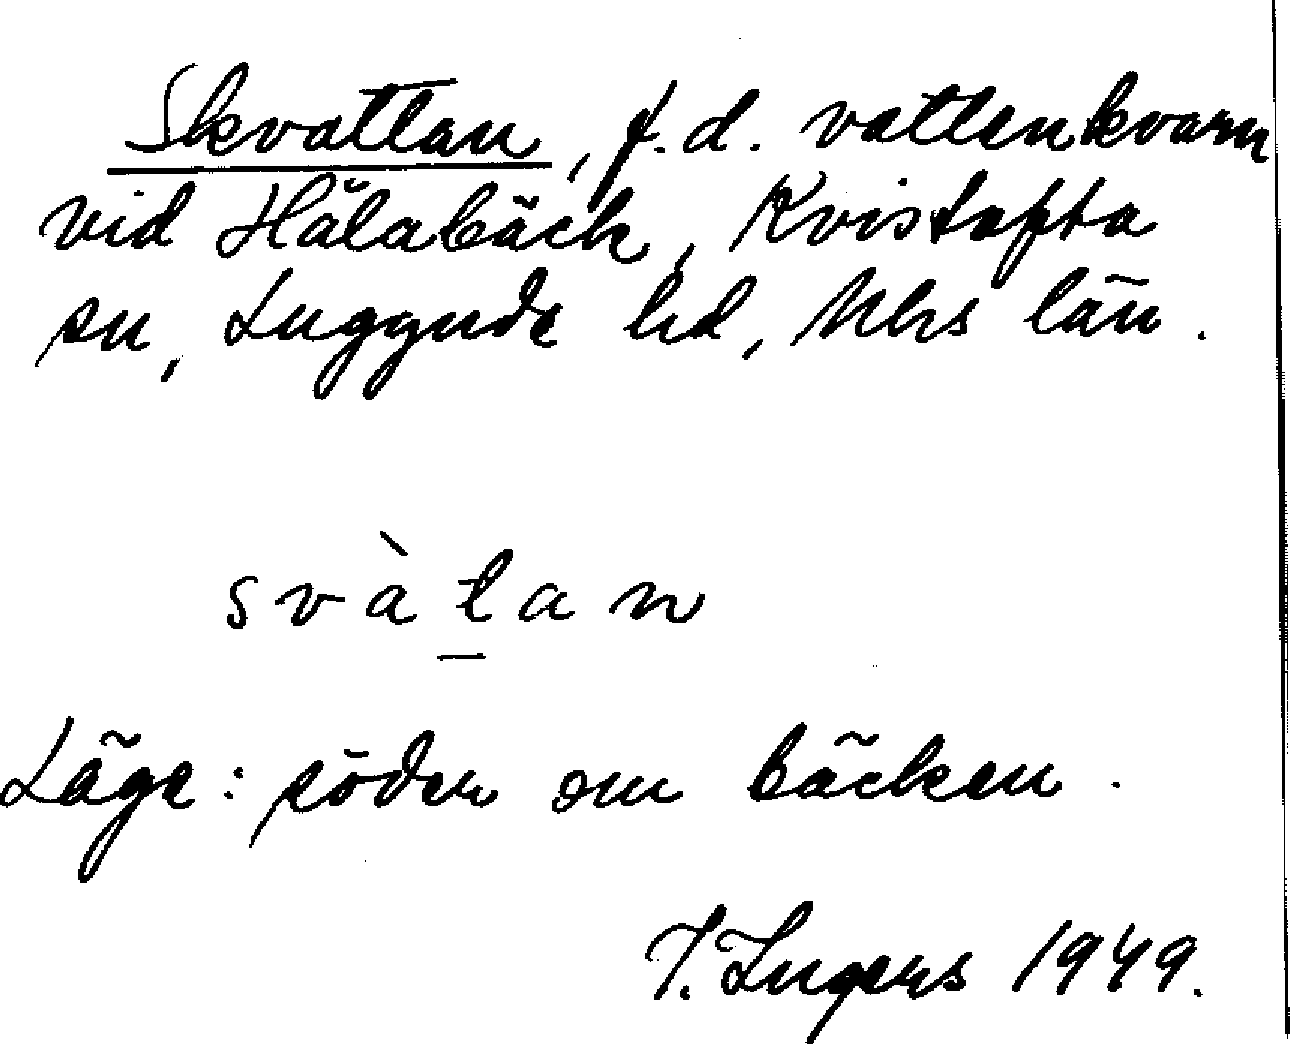 Skvattan, f.d. vattenkvarn
vid Hålabäck, Kvistofta
sn, Luggude hd, Mhs län.
svàtan
Läge: söder om bäcken.
I. Ingers 1949.